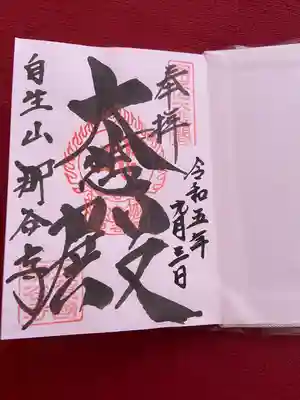 奉拝
令和五年
元月三日
大悲殿
自生山那谷寺